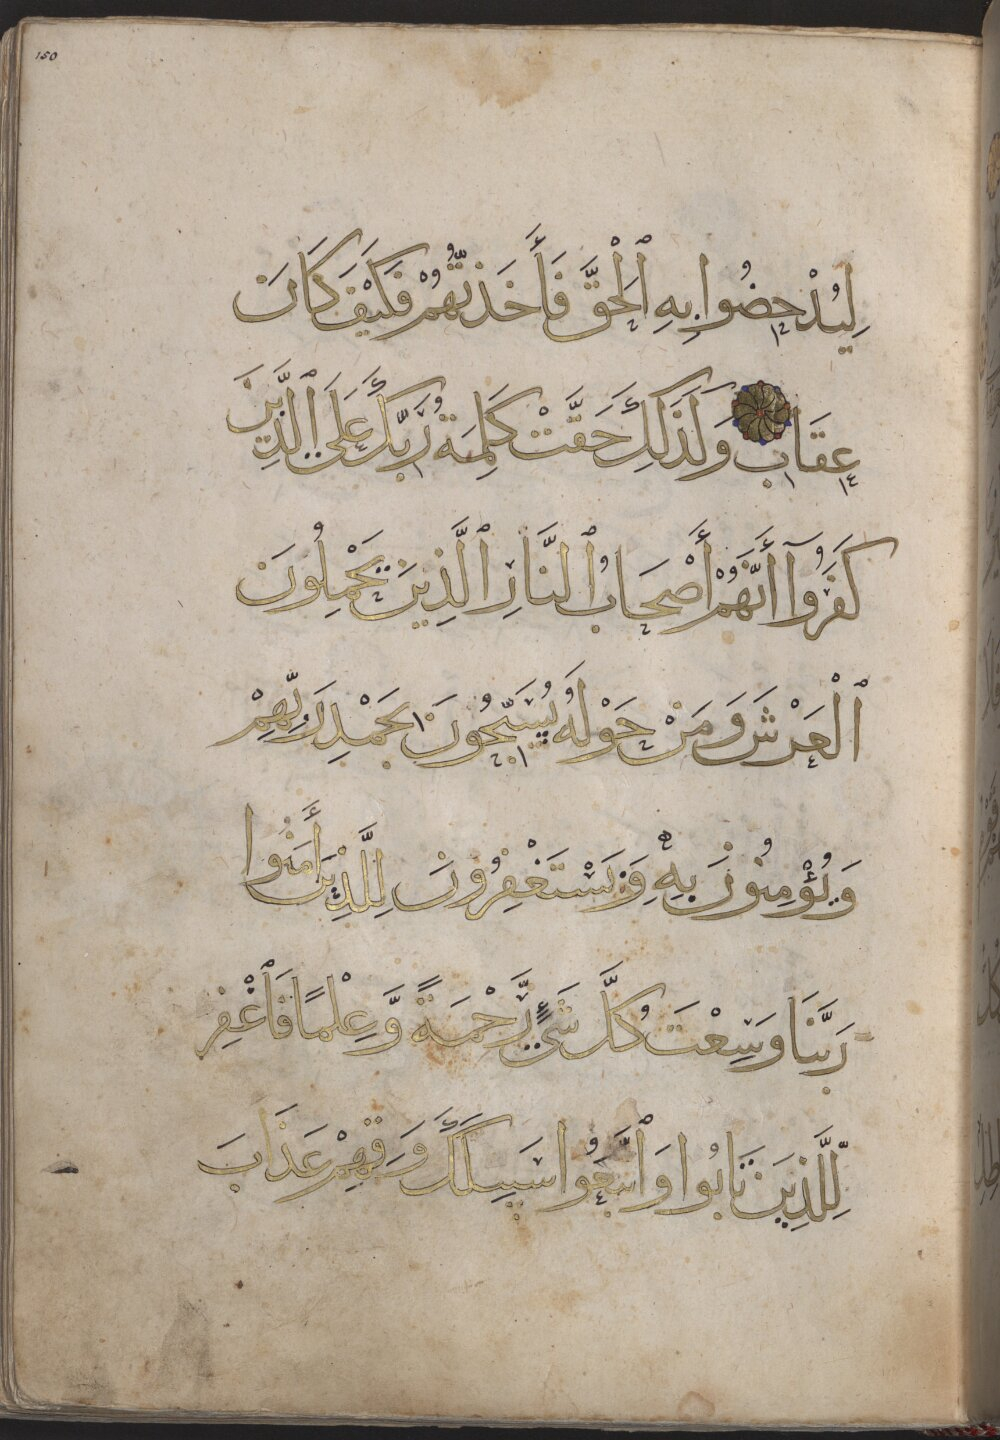 150
لِيُدْحِضُوا بِهِ ٱلْحَقَّ فَأَخَذتُّهُمْ فَكَيْفَ كَانَ
عِقَابِ وَلَذَلِكَ حَقَّتْ كَلِمَةُ رَبِّكَ عَلَى ٱلَّذِينَ
كَفَرُوٓا أَنَّهُمْ أَصْحَابُ ٱلنَّارِ ٱلَّذِينَ يَحْمِلُونَ
ٱلْعَرْشَ وَمَنْ حَوْلَهُ يُسَبِّحُونَ بِحَمْدِ رَبِّهِمْ
وَيُؤْمِنُونَ بِهِ وَيَسْتَغْفِرُونَ لِلَّذِينَ أَمَنُوا
رَبَّنَا وَسِعْتَ كُلَّ شَيْءٍ رَّحْمَةً وَّعِلْمًا فَٱغْفِر
لِّلَّذِينَ تَابُوا وَٱتَّبَعُوا سَبِيلَكَ وَقِهِمْ عَذَابَ